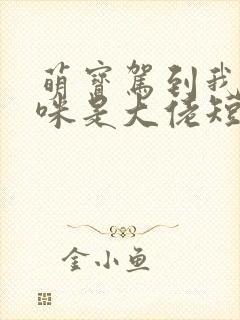 萌宝驾到我
咪是大佬短
金小鱼